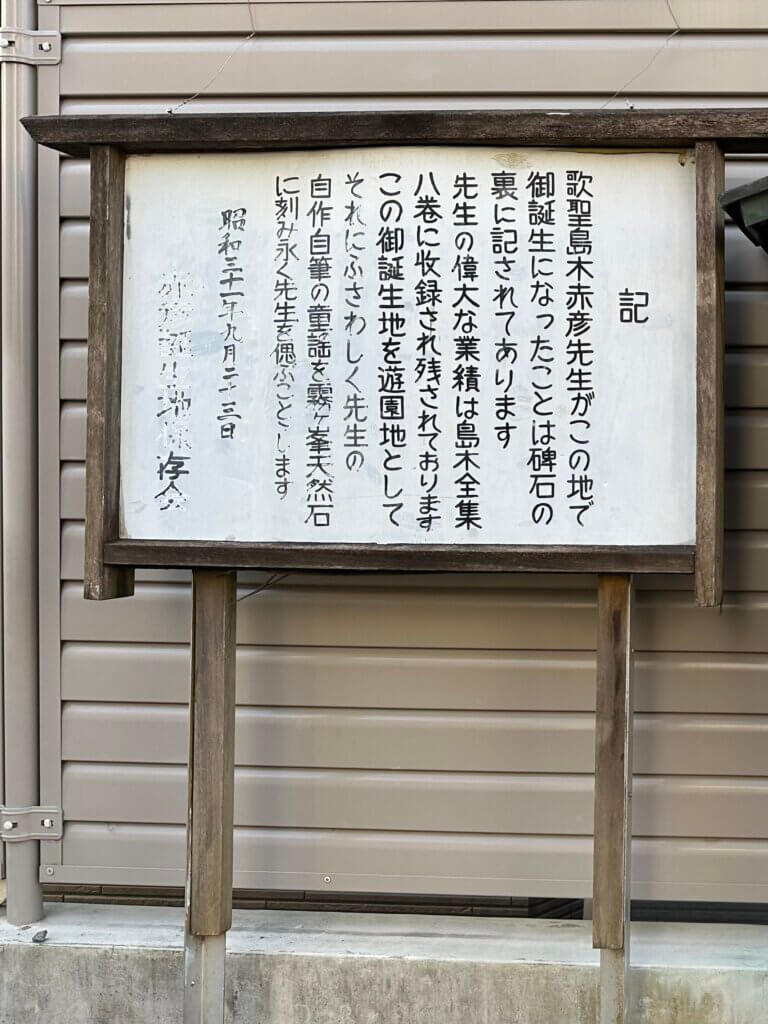 記
歌聖島木赤彦先生がこの地で
御誕生になったことは碑石の
裏に記されてあります
先生の偉大な業績は島木全集
八巻に收録され残されております
この御誕生地を遊園地として
それにふさわしく先生の
自作自筆の童謡を霧ヶ峯天然石
に刻み永く先生を偲ぶことゝします
昭和三十一年九月二十三日
赤彦誕生地保存会